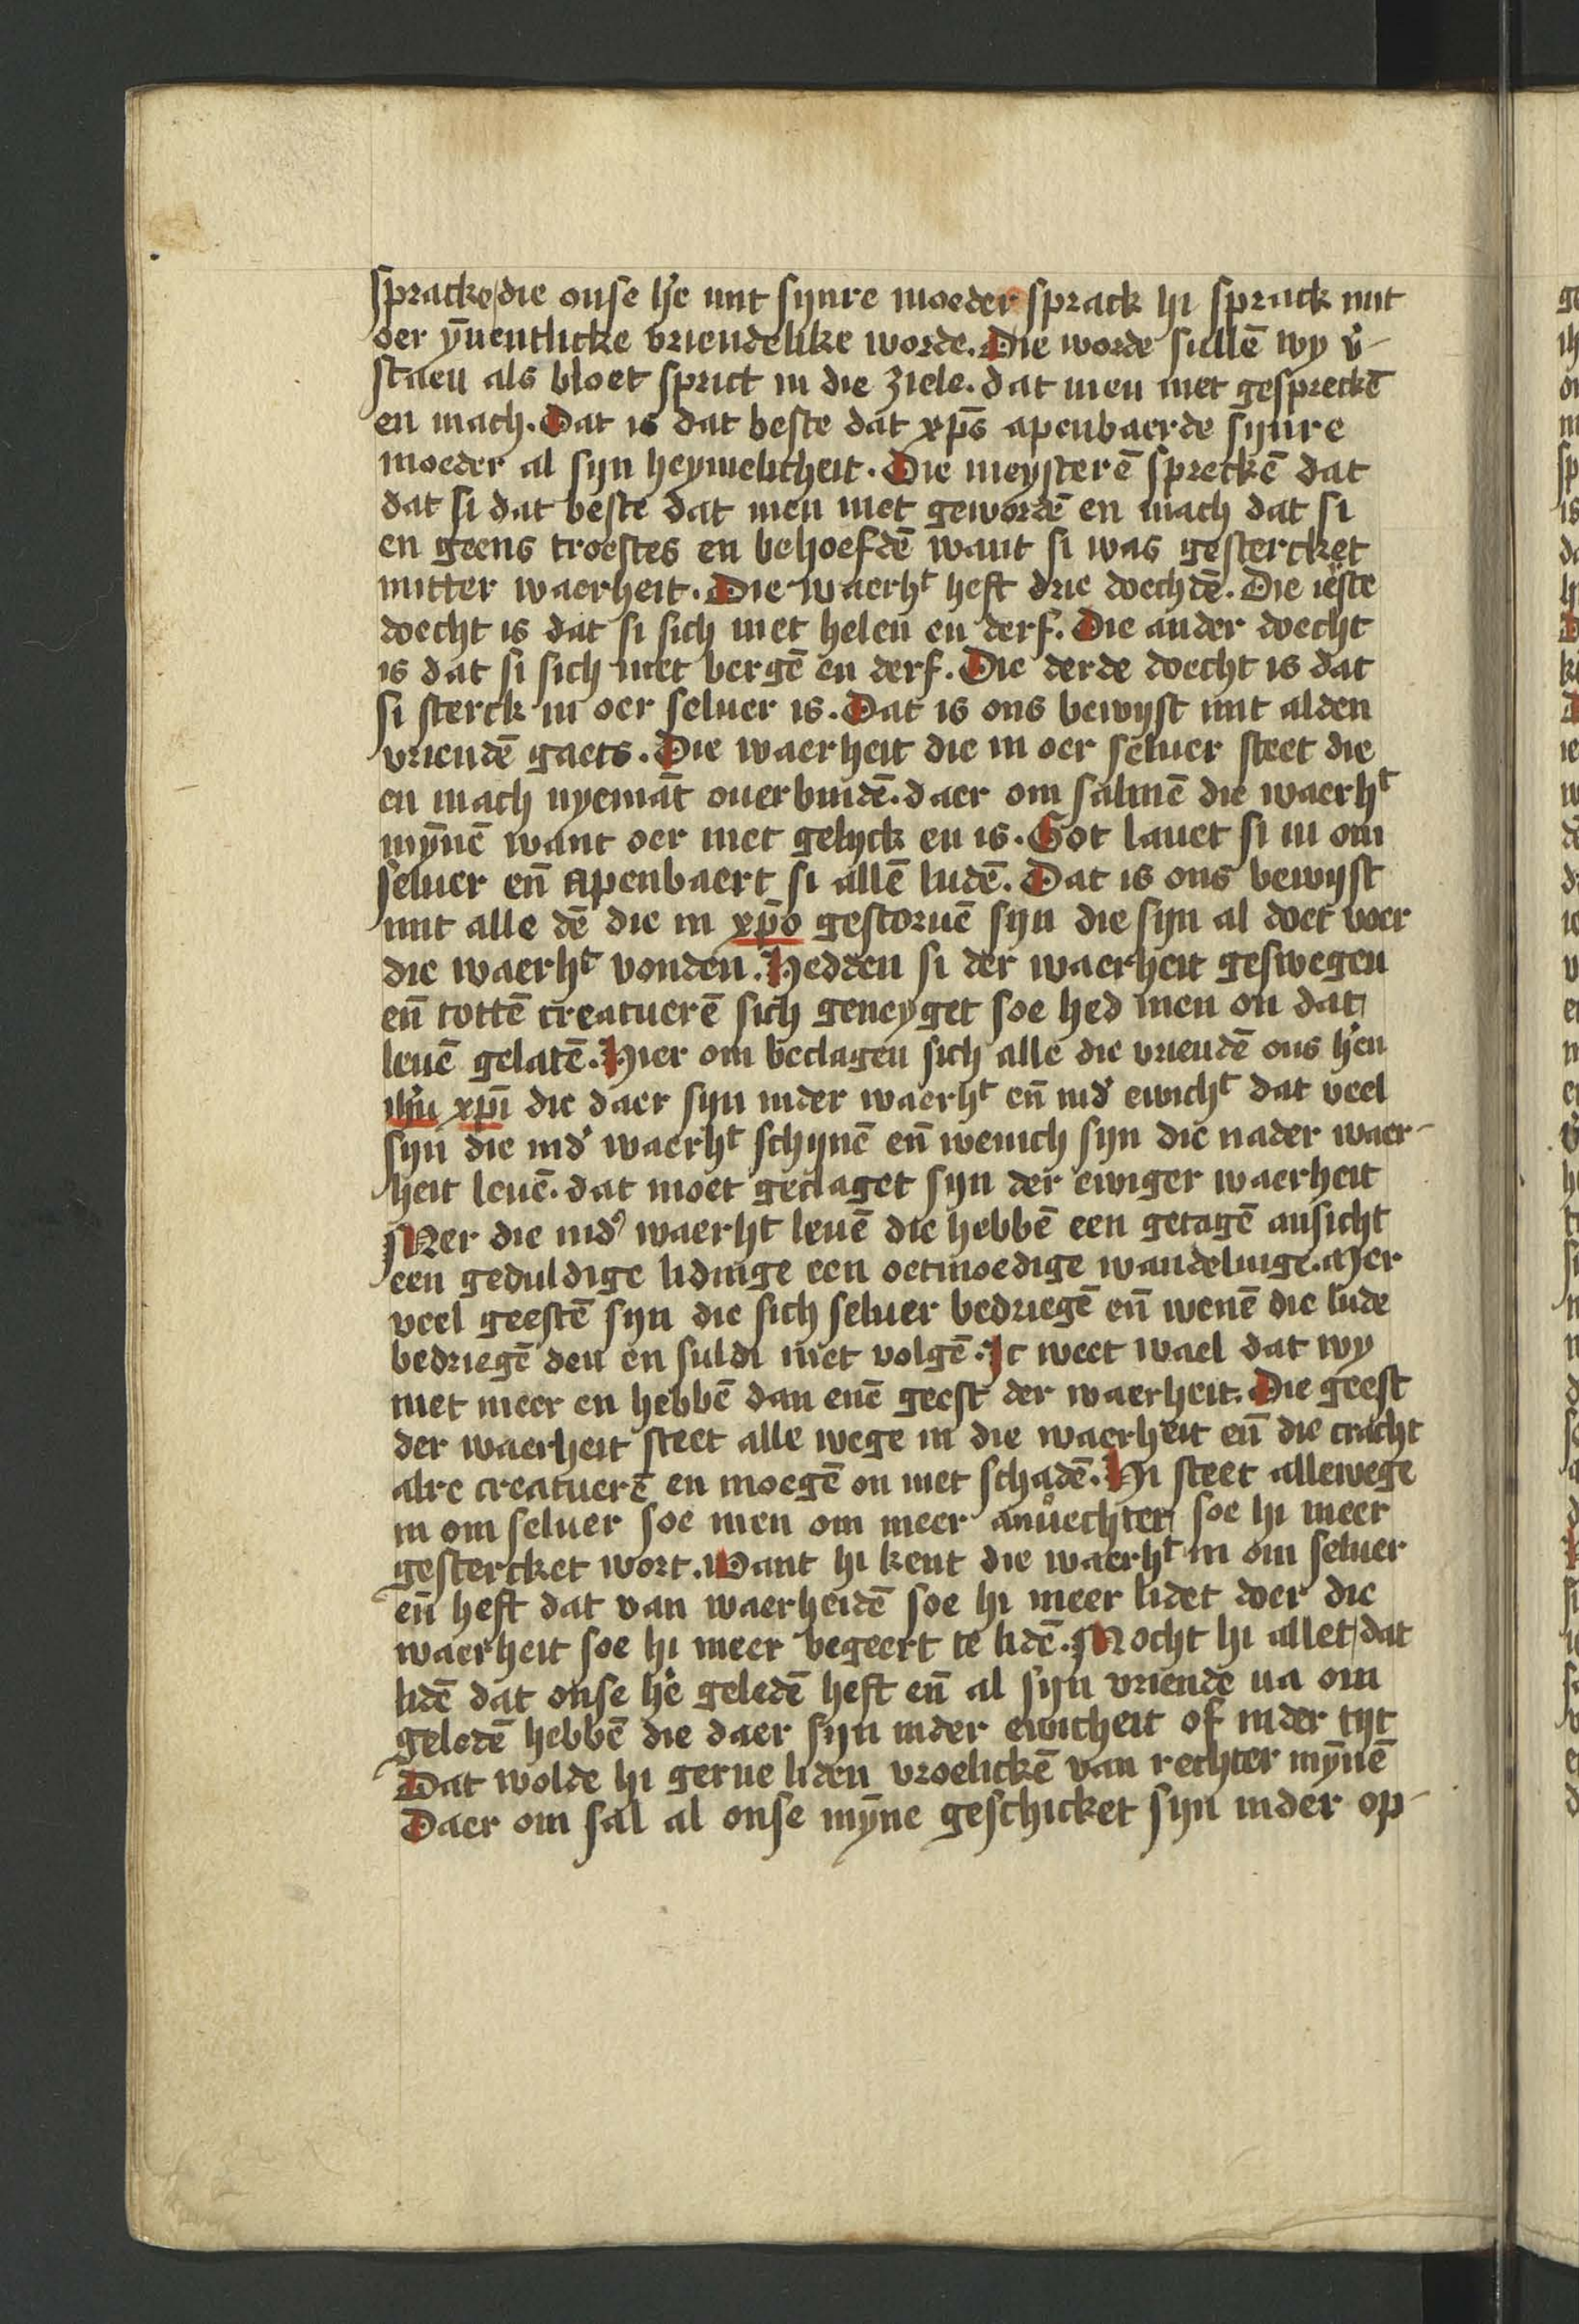 spracke die onse he'e mit sijnre moeder sprack hi sprack mit
oer ȳnentlicke vriendelike worde. Die worde sullē wy v'-
staen als bloet sprict in die ziele. dat men niet gespreckē
en mach. Dat is dat beste dat xp̄s apenbaerde sijnre
moeder al sijn heymelicheit. Die meysterē spreckē dat
dat si dat beste dat men niet gewordē en mach dat si
en geens troestes en behoefdē want si was gestercket
mitter waerheit. Die waerhᵗ heft drie doechdē. Die ieste
doecht is dat si sich niet helen en derf. Die ander doecht
is dat si sich niet bergē en derf. Die derde doecht is dat
si sterck in oer seluer is. Dat is ons bewijst mit alden
vriendē gaets. Die waerheit die in oer seluer steet die
en mach nyemāt ouerbindē. daer om salmē die waerhᵗ
mȳnē want oer niet gelijck en is. Got lauet si in om
seluer en̄ apenbaert si allē ludē. Dat is ons bewijst
mit alle dē die in xp̄o gestoruē sijn die sijn al doet voer
die waerhᵗ vonden. Hedden si der waerheit geswegen
en̄ tottē creatuerē sich geneyget soe hed men on dat
leuē gelatē. Hier om beclagen sich alle die vriendē ons h'en
ihū xp̄i die daer sijn inder waerhᵗ en̄ ind' ewichᵗ dat veel
sijn die ind' waerhᵗ schijnē en̄ wenich sijn die nader waer-
heit leuē. dat moet geclaget sijn der ewiger waerheit
Mer die ind' waerhᵗ leuē die hebbē een getagē ansicht
een geduldige lidinge een oetmoedige wandelinge. Mer
veel geestē sijn die sich seluer bedriegē en̄ wenē die lude
bedriegē den en suldi niet volgē. Ic weet wael dat wy
niet meer en hebbē dan enē geest der waerheit. Die geest
der waerheit steet alle wege in die waerheit en̄ die cracht
alre creatuerē en moegē on niet schadē. Hi steet allewege
in om seluer soe men om meer anuechtet soe hi meer
gestercket wort. Want hi kent die waerhᵗ in om seluer
en̄ heft dat van waerheidē soe hi meer lidet doer die
waerheit soe hi meer begeert te lidē. Mocht hi allet dat
lidē dat onse h'e geledē heft en̄ al sijn vriende na om
geledē hebbē die daer sijn inder ewicheit of inder tijt
Dat wolde hi gerne liden vroelickē van rechter mȳnē
Daer om sal al onse mȳne geschicket sijn inder op-